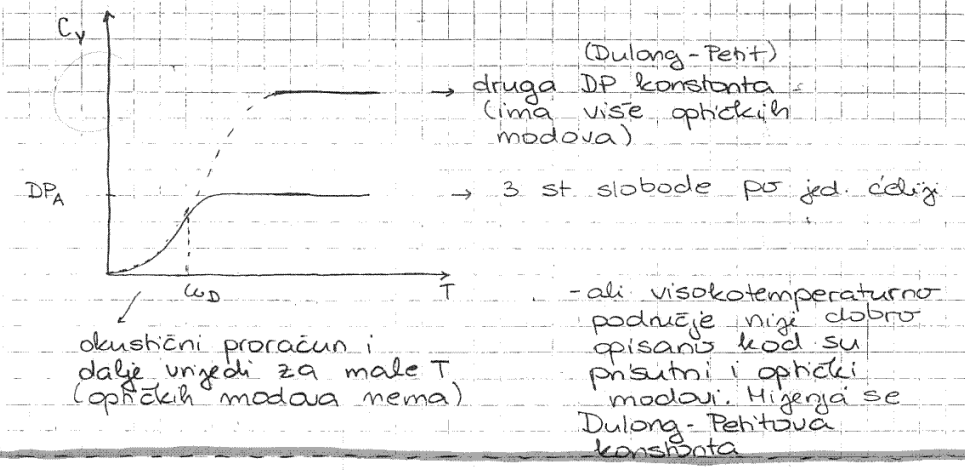 C_V
(Dulong-Petit)
→ druga DP konstanta
(ima više optičkih
modova)
DP_A
→ 3 st slobode po jed. ćeliji
ω_D
T
akustični proračun i
dalje vrijedi za male T
(optičkih modova nema)
- ali visokotemperaturno
područje nije dobro
opisano kad su
prisutni i optički
modovi. Mijenja se
Dulong-Petitova
konstanta